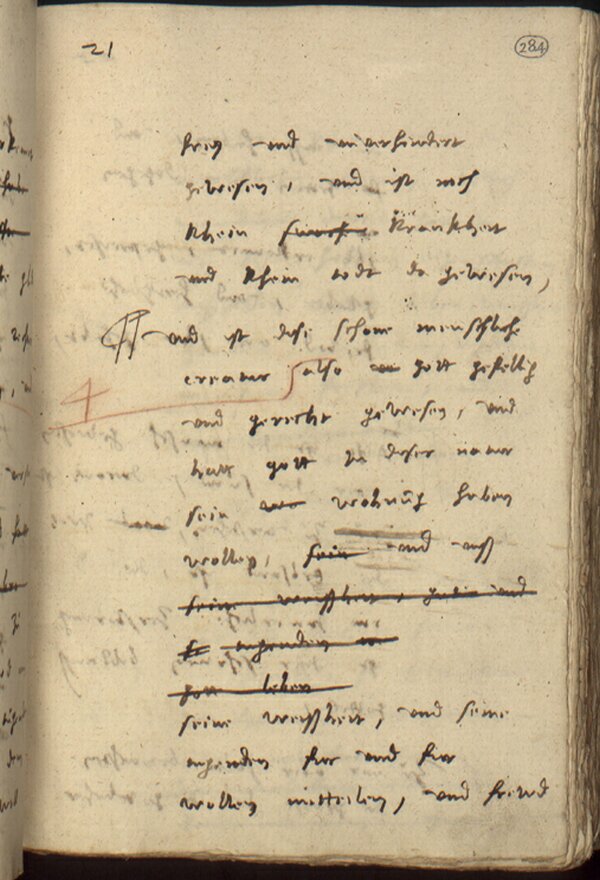 21
284
frey und unverhindert
gewesen, und ist noch
khein Krankheit
und khein todt da gewesen,
und ist dise schone menschliche
creatur also gott gefellig
4
und gerecht gewesen, und
hatt gott in diser natur
sein wohnung haben
wollen, sein und auß
seine weißheit, und
tugenden
gott leben
seine weißheit, und seine
tugenden fur und fur
wollen mitteilen, und freud